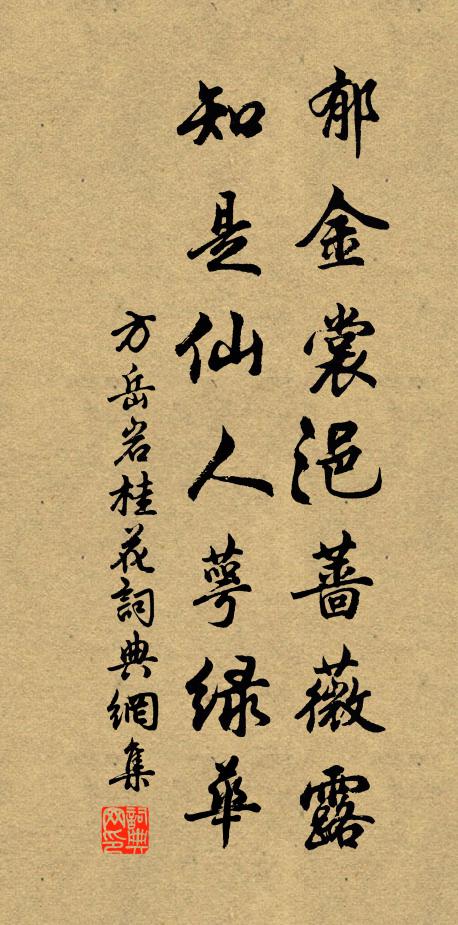 郁金裳浥蔷薇露
知是仙人萼绿华
方岳岩桂花詞典網集
詞典网印